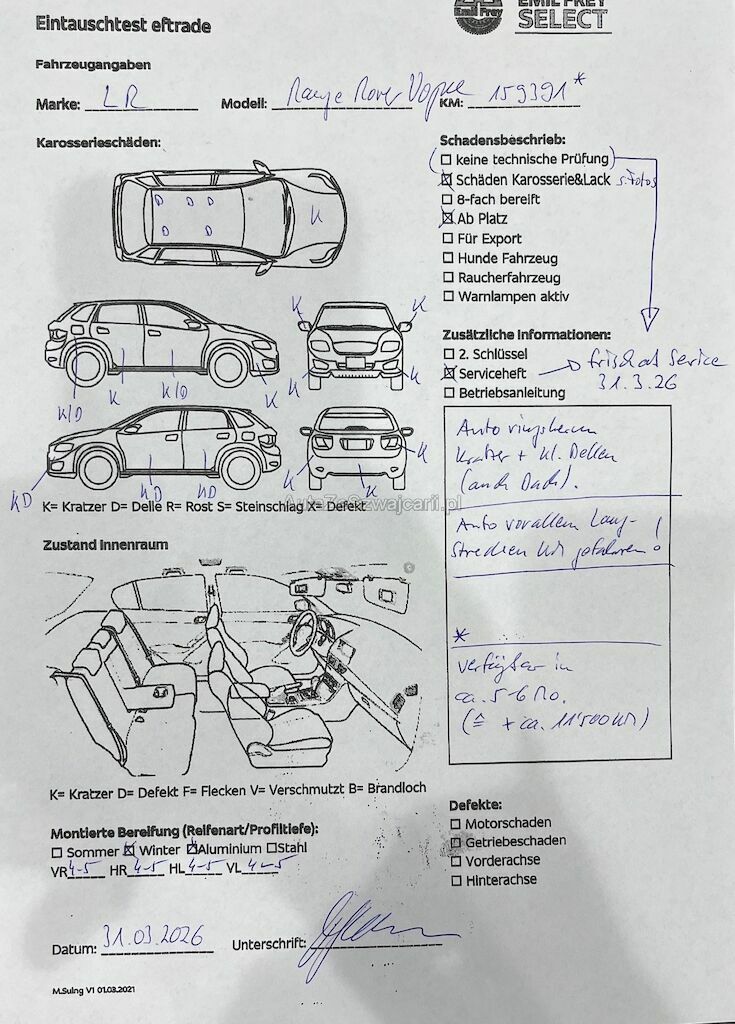 EMIL FREY
SELECT
Emil Frey
Eintauschtest eftrade
Fahrzeugangaben
Marke: LR Modell: Range Rover Vogue KM: 159391*
Karosserieschäden:
Schadensbeschrieb:
(☐ keine technische Prüfung)
☒ Schäden Karosserie&Lack s. Fotos
☐ 8-fach bereift
☒ Ab Platz
☐ Für Export
☐ Hunde Fahrzeug
☐ Raucherfahrzeug
☐ Warnlampen aktiv
D D D D
D D
K
K K
K/D K K/D K K K
K K
KD KD KD K K
K= Kratzer D= Delle R= Rost S= Steinschlag X= Defekt
AutaZeSzwajcarii.pl
Zusätzliche Informationen:
☐ 2. Schlüssel
☒ Serviceheft → frisch ab Service
31.3.26
☐ Betriebsanleitung
Auto ringsherum
Kratzer + kl. Dellen
(auch Dach).
Auto vorallem Lang-
strecken km gefahren!
*
Verfügbar in
ca. 5-6 Mo.
(≙ + ca. 11'500 km)
Zustand Innenraum
K= Kratzer D= Defekt F= Flecken V= Verschmutzt B= Brandloch
Montierte Bereifung (Reifenart/Profiltiefe):
☐ Sommer ☒ Winter ☒ Aluminium ☐ Stahl
VR 4-5 HR 4-5 HL 4-5 VL 4-5
Defekte:
☐ Motorschaden
☐ Getriebeschaden
☐ Vorderachse
☐ Hinterachse
Datum: 31.03.2026 Unterschrift:
M.Suing V1 01.03.2021